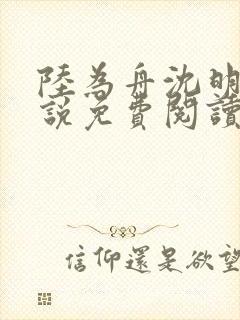 陸為舟沈明
説免費閱讀
信仰還是欲望